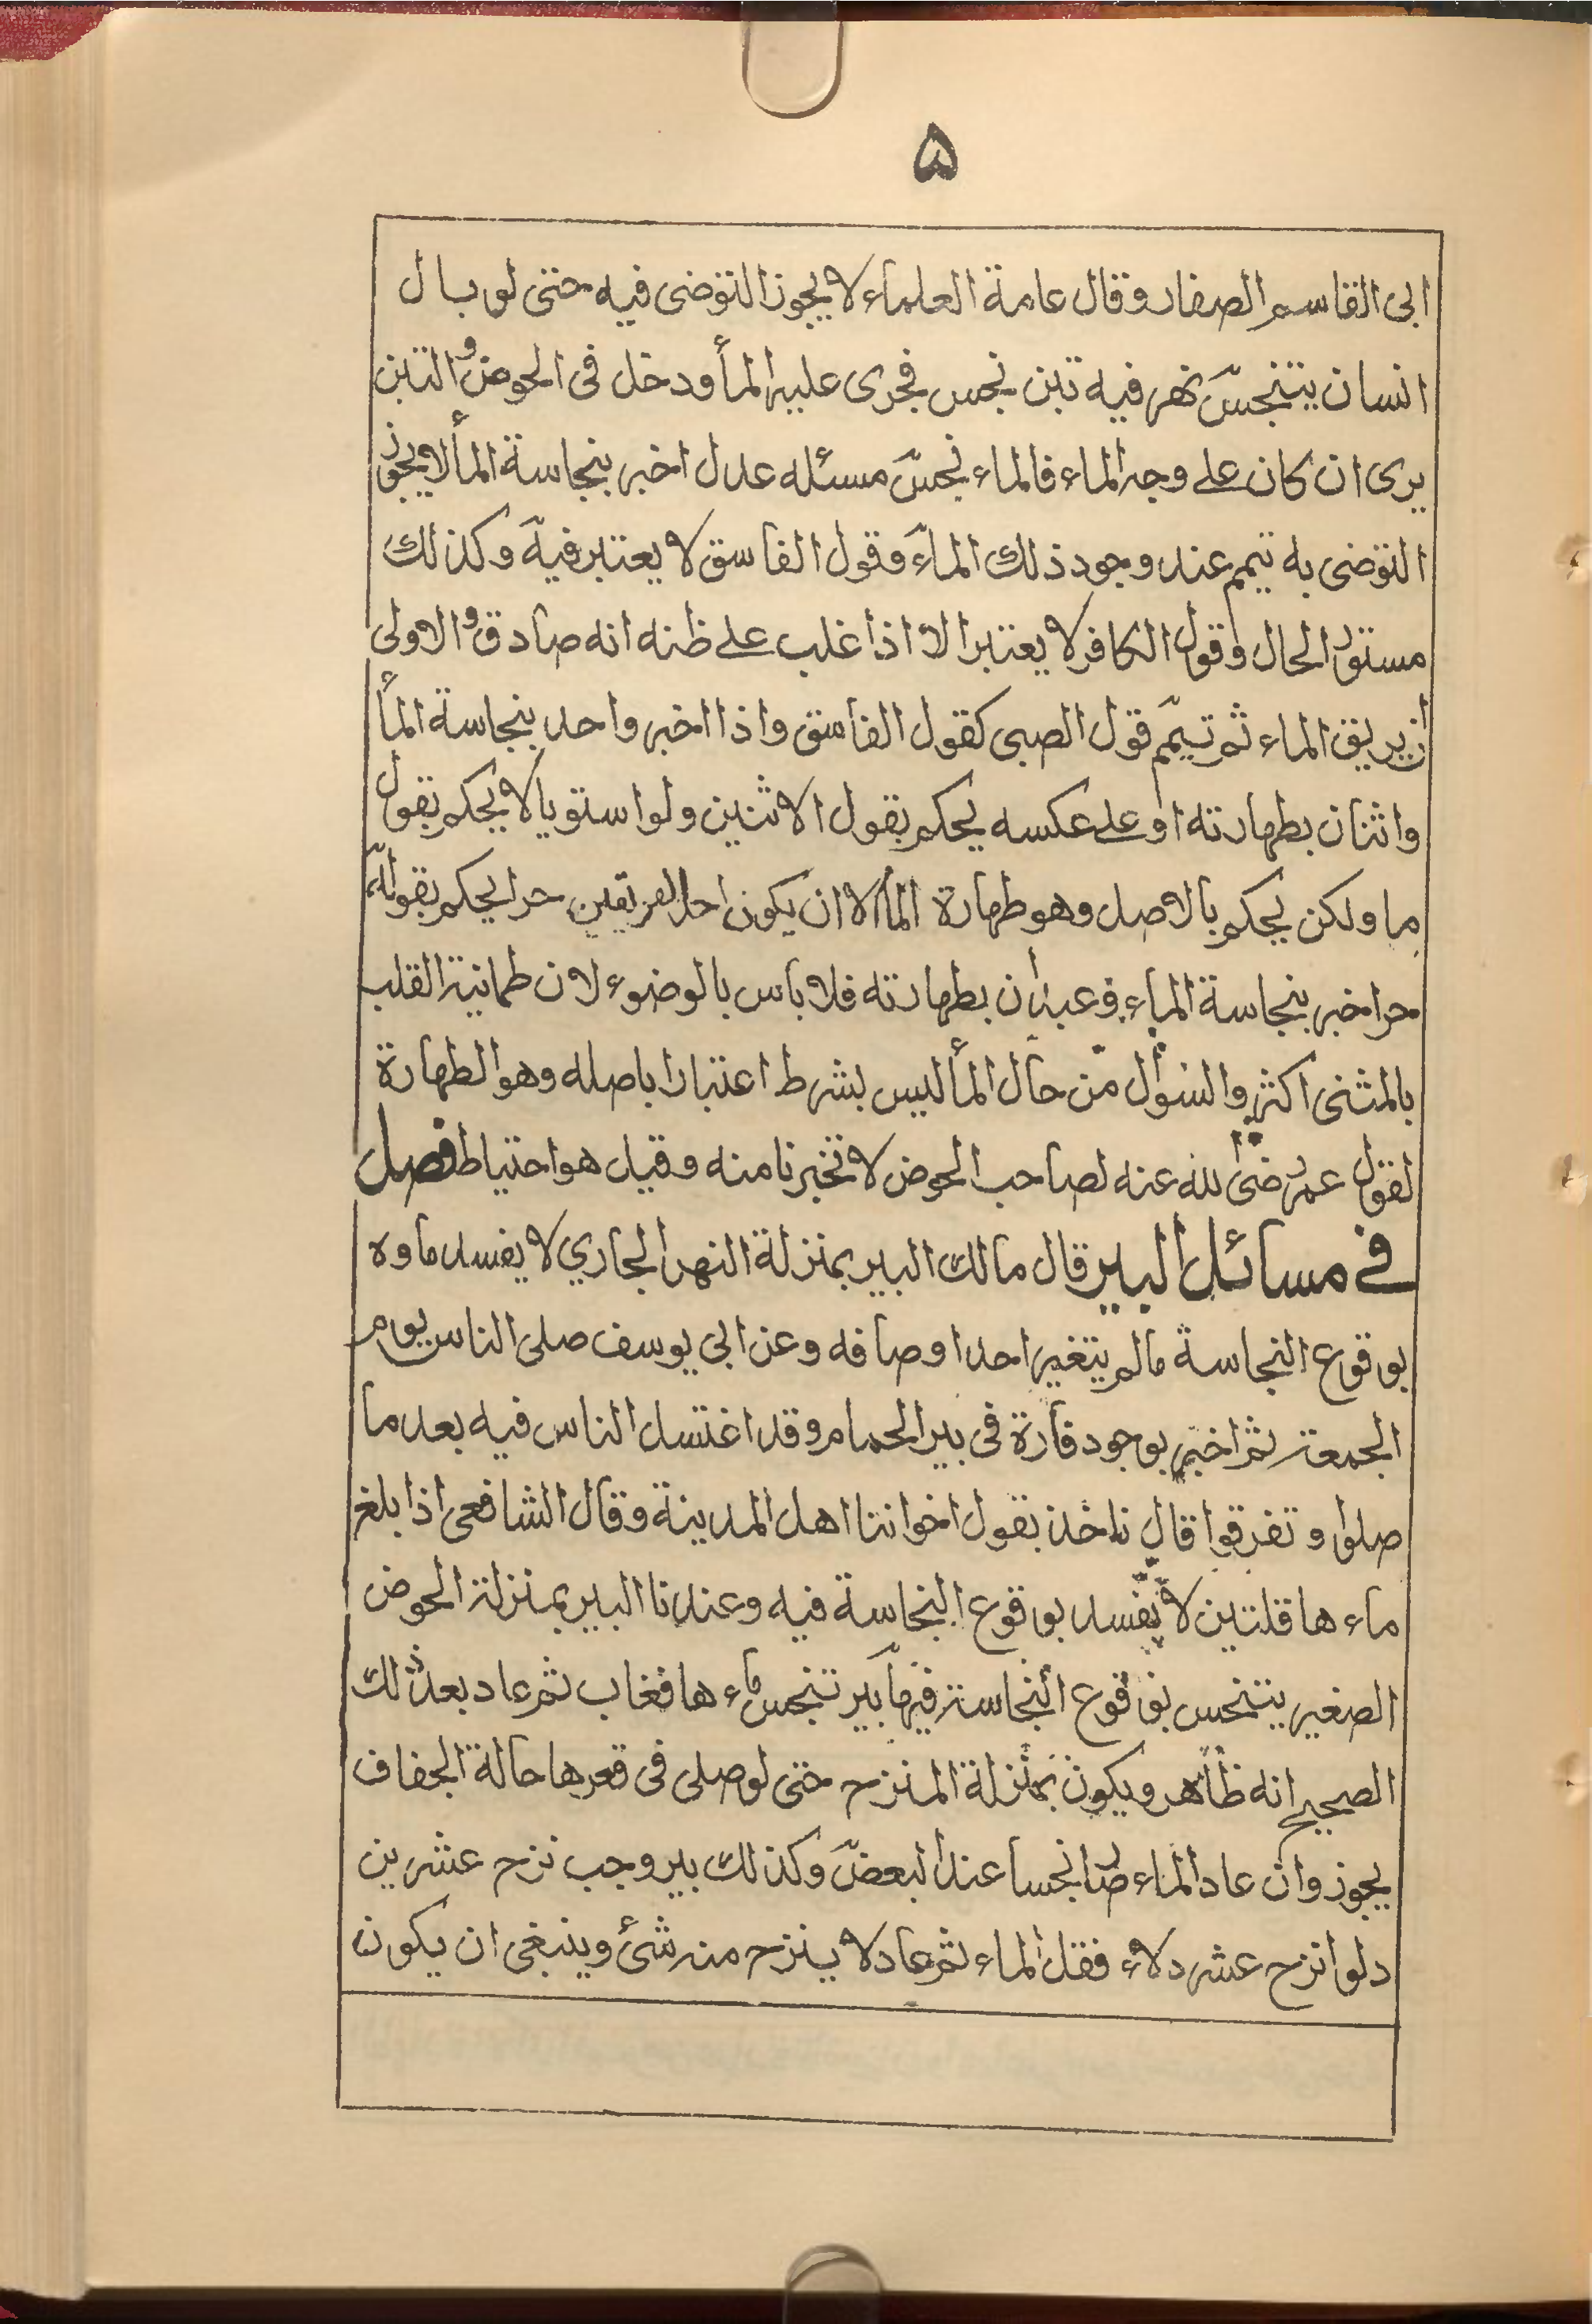 ۵
ابى القاسم الصفار وقال عامة العلماء لا يجوز التوضى فيه حتى لو بال
انسان يتنجس نهر فيه تبن نجس فجرى عليه المأ ودخل فى الحوض و التبن
يرى ان كان على وجه الماء فالماء نجس مسئله عدل اخبر بنجاسة المأ لا يجوز
التوضى به تيمم عند وجود ذلك الماء وقول الفاسق لا يعتبر فيه وكذلك
مستور الحال وقول الكافر لا يعتبر الا اذا غلب على ظنه انه صادق و الاولى
ان يريق الماء ثم تيمم قول الصبى كقول الفاسق واذا اخبر واحد بنجاسة المأ
واثنان بطهارته او على عكسه يحكم بقول الاثنين ولو استويا لا يحكم بقول
ما ولكن يحكم بالاصل وهو طهارة المأ الا ان يكون احد الفريقين حرا يحكم بقوله
حر اخبر بنجاسة الماء وعبدان بطهارته فلا باس بالوضوء لان طمانية القلب
بالمثنى اكثر والسوال من حال المأ ليس بشرط اعتبارا باصله وهو الطهارة
لقول عمر رضى الله عنه لصاحب الحوض لا تخبرنا منه وقيل هو احتياط فصل
في مسائل البير قال مالك البير بمنزلة النهر الجاري لا يفسد ماوه
بوقوع النجاسة مالم يتغير احد اوصافه وعن ابى يوسف صلى الناس يوم
الجمعة ثم اخبر بوجود فارة فى بير الحمام وقد اغتسل الناس فيه بعد ما
صلوا و تفرقوا قال ناخذ بقول اخواننا اهل المدينة وقال الشافعى اذا بلغ
ماء ها قلتين لا يفسد بوقوع النجاسة فيه وعندنا البير بمنزلة الحوض
الصغير يتنجس بوقوع النجاسة فيها بير تنجس ماء ها فغاب ثم عاد بعد ذلك
الصحيح انه طاهر ويكون بمنزلة المنزح حتى لو صلى فى قعرها حالة الجفاف
يجوز وان عاد الماء صار نجسا عند البعض وكذلك بير وجب نزح عشرين
دلوا نزح عشر دلاء فقل الماء ثم عاد لا ينزح منه شئ وينبغى ان يكون